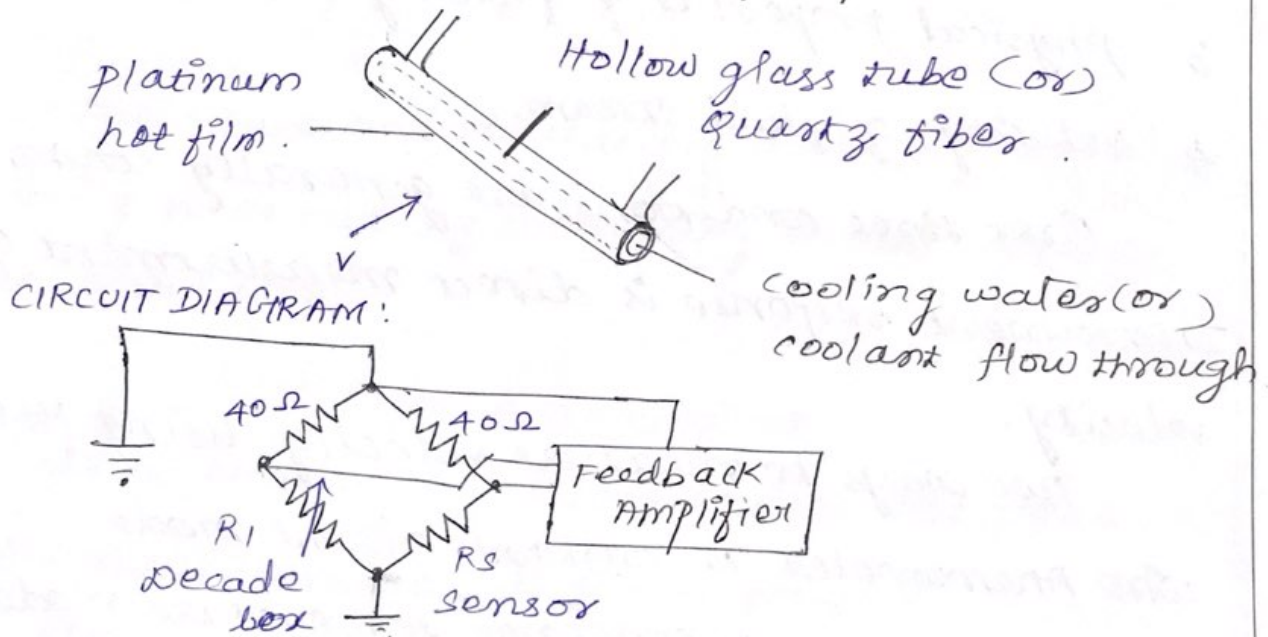 platinum
hot film.
Hollow glass tube (or)
Quartz fiber.
V
cooling water (or)
coolant flow through
CIRCUIT DIAGRAM:
40Ω
40Ω
Feedback
Amplifier
R1
Decade
box
RS
sensor